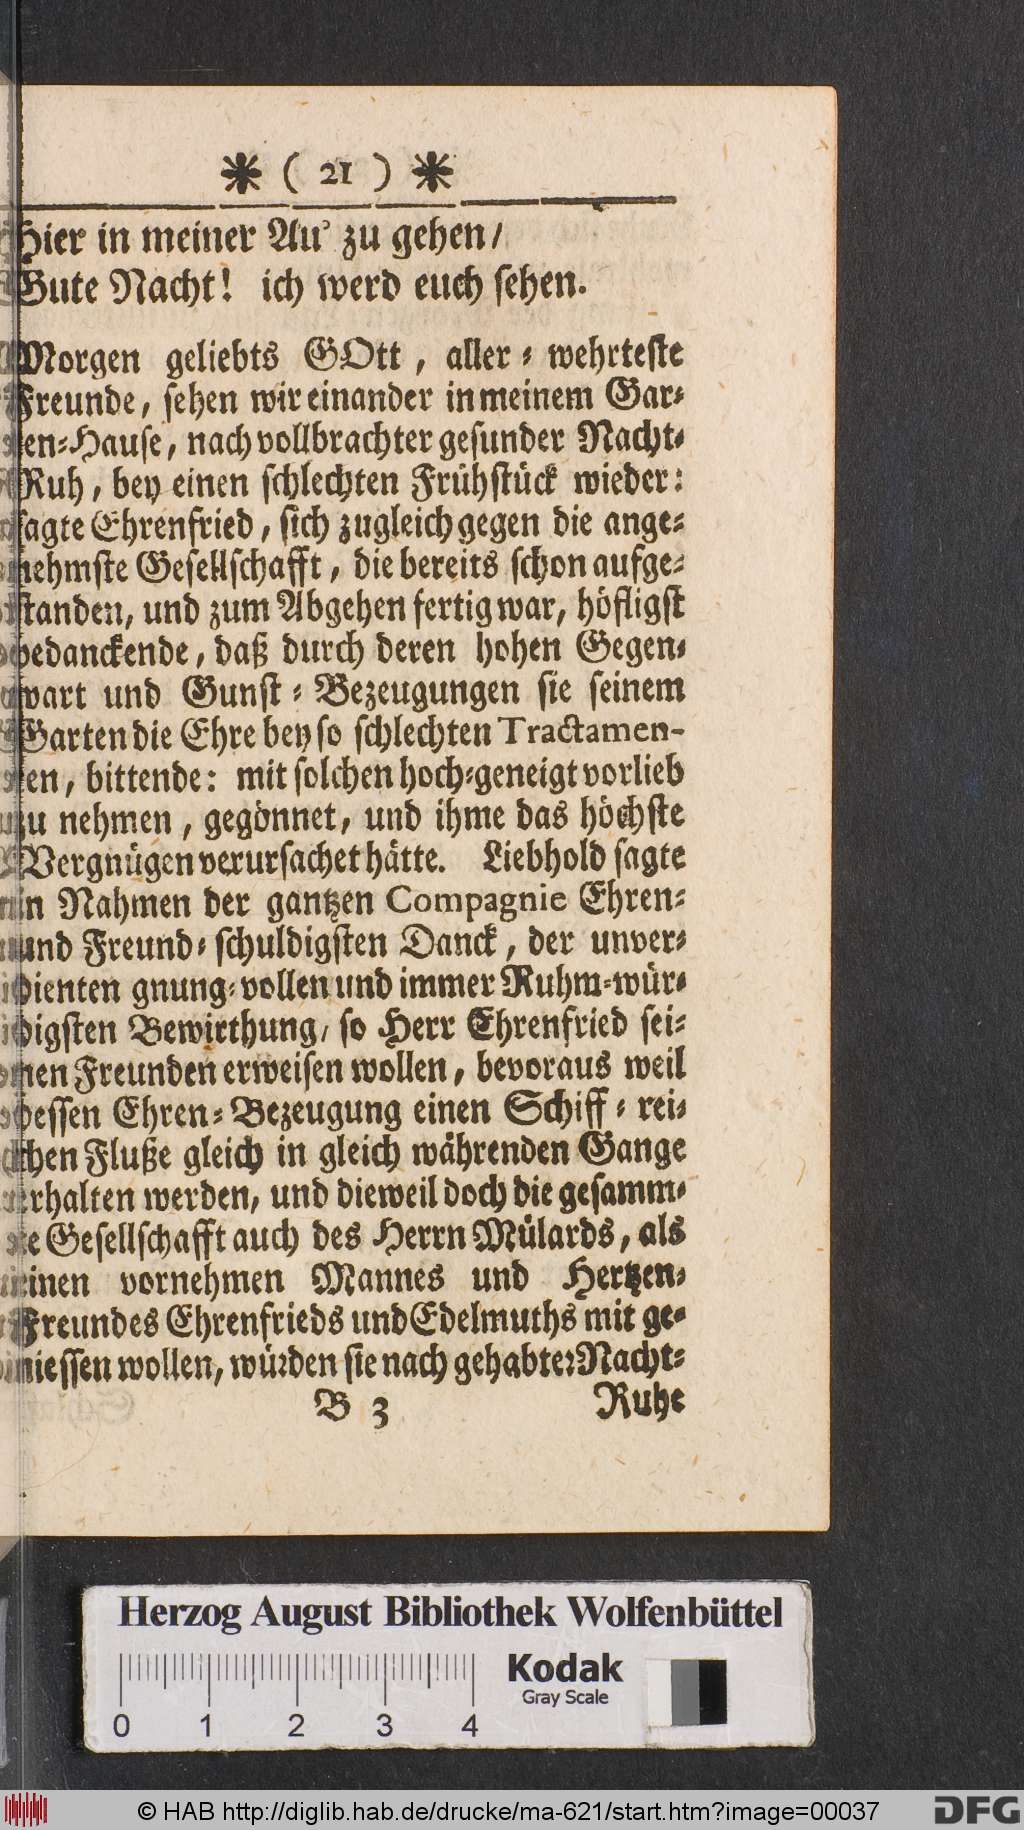 * ( 21 ) *
Hier in meiner Au' zu gehen/
Gute Nacht! ich werd euch sehen.
Morgen geliebts GOtt, aller-wehrteste
Freunde, sehen wir einander in meinem Gar-
ten-Hause, nach vollbrachter gesunder Nacht-
Ruh, bey einen schlechten Frühstück wieder:
sagte Ehrenfried, sich zugleich gegen die ange-
nehmste Gesellschafft, die bereits schon aufge-
standen, und zum Abgehen fertig war, höfligst
bedanckende, daß durch deren hohen Gegen-
wart und Gunst-Bezeugungen sie seinem
Garten die Ehre bey so schlechten Tractamen-
ten, bittende: mit solchen hoch-geneigt vorlieb
zu nehmen, gegönnet, und ihme das höchste
Vergnügen verursachet hätte. Liebhold sagte
in Nahmen der gantzen Compagnie Ehren-
und Freund-schuldigsten Danck, der unver-
dienten gnung-vollen und immer Ruhm-wür-
digsten Bewirthung/ so Herr Ehrenfried sei-
nen Freunden erweisen wollen, bevoraus weil
dessen Ehren-Bezeugung einen Schiff-rei-
chen Fluße gleich in gleich währenden Gange
erhalten werden, und dieweil doch die gesamm-
te Gesellschafft auch des Herrn Mülards, als
einen vornehmen Mannes und Hertzen-
Freundes Ehrenfrieds und Edelmuths mit ge-
niessen wollen, würden sie nach gehabter Nacht-
B 3 Ruhe
Herzog August Bibliothek Wolfenbüttel
Kodak
Gray Scale
0 1 2 3 4
© HAB http://diglib.hab.de/drucke/ma-621/start.htm?image=00037
DFG